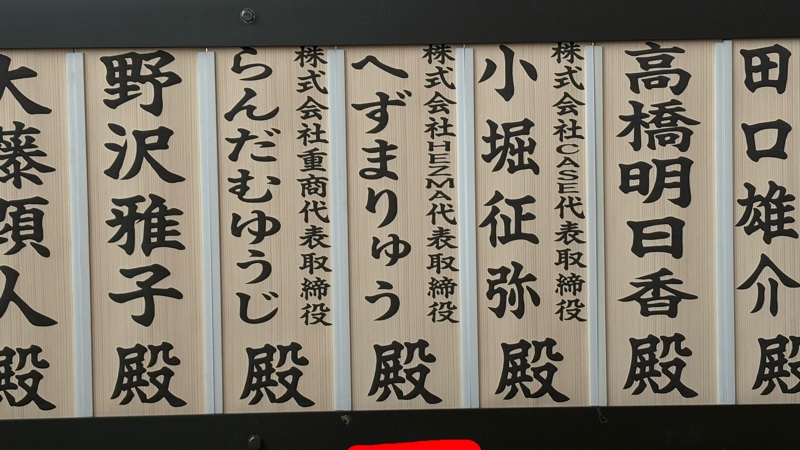 田口雄介殿
高橋明日香殿
株式会社CASE代表取締役
小堀征弥殿
株式会社HEZMA代表取締役
へずまりゅう殿
株式会社重商代表取締役
らんだむゆうじ殿
野沢雅子殿
大藤頌人殿